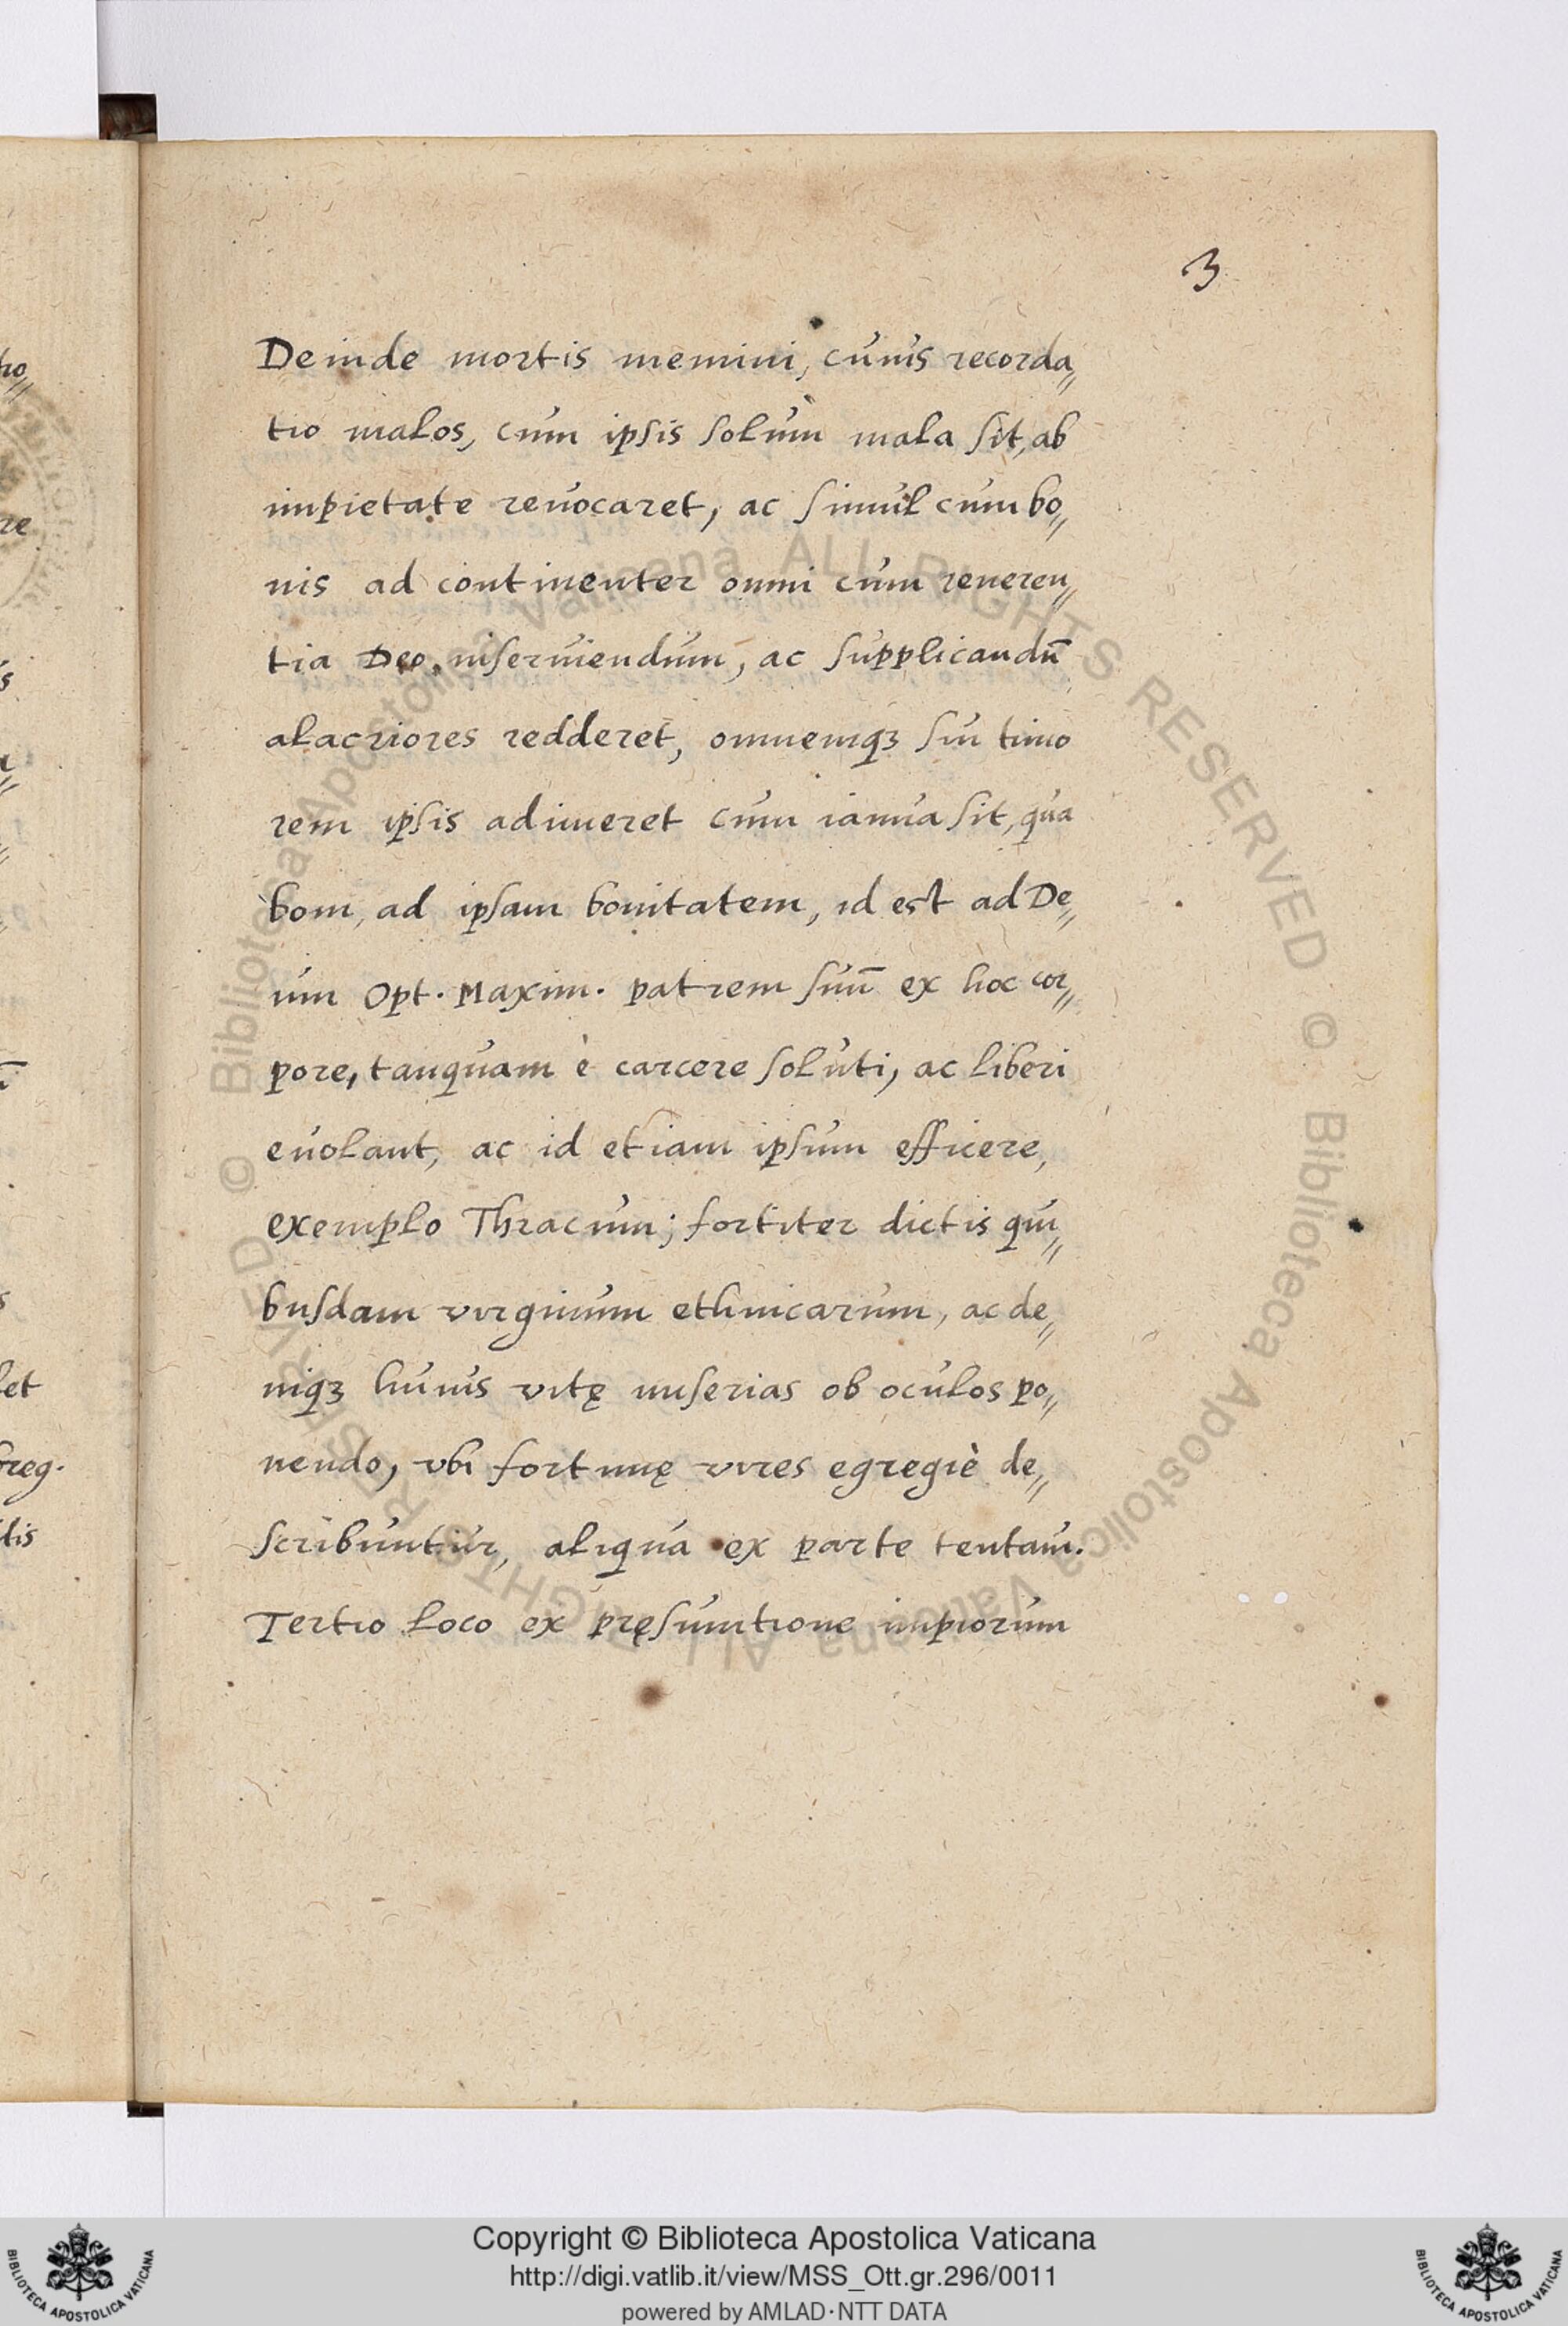 3
Deinde mortis memini, cuius recorda„
tio malos, cum ipsis solùm mala sit, ab
impietate reuocaret, ac simul cum bo„
nis ad continenter omni cum reueren„
tia Deo, inseruiendum, ac supplicandū
alacriores redderet, omnemqꝫ sui timo
rem ipsis adimeret cum ianua sit, qua
boni, ad ipsam bonitatem, id est ad De„
um Opt. Maxim. patrem suū ex hoc cor„
pore, tanquam è carcere soluti, ac liberi
euolant, ac id etiam ipsum efficere,
exemplo Thracum; fortiter dictis qui„
busdam virginum ethnicarum, ac de„
niqꝫ huius vitę miserias ob oculos po„
nendo, vbi fortunę vires egregiè de„
scribuntur, aliqua ex parte tentaui.
Tertio loco ex pręsumtione impiorum
Copyright © Biblioteca Apostolica Vaticana
http://digi.vatlib.it/view/MSS_Ott.gr.296/0011
powered by AMLAD·NTT DATA
BIBLIOTECA APOSTOLICA VATICANA
BIBLIOTECA APOSTOLICA VATICANA
© Biblioteca Apostolica Vaticana ALL RIGHTS RESERVED © Biblioteca Apostolica Vaticana ALL RIGHTS RESERVED